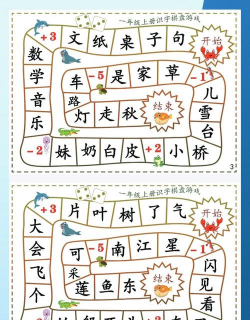 一年级上册识字棋盘游戏
+3 文 纸 桌 子 句 开始
数 车 -5 是 家 草 -1
学 路 儿
音 灯 走 秋 结束 雪
乐 台
-2 妹 奶 白 皮 +2 小 桥
3
一年级上册识字棋盘游戏
+3 片 叶 树 了 气 开始
大 可 -5 南 江 星 -1
会 采 闪
飞 莲 鱼 东 结束 见
个 看